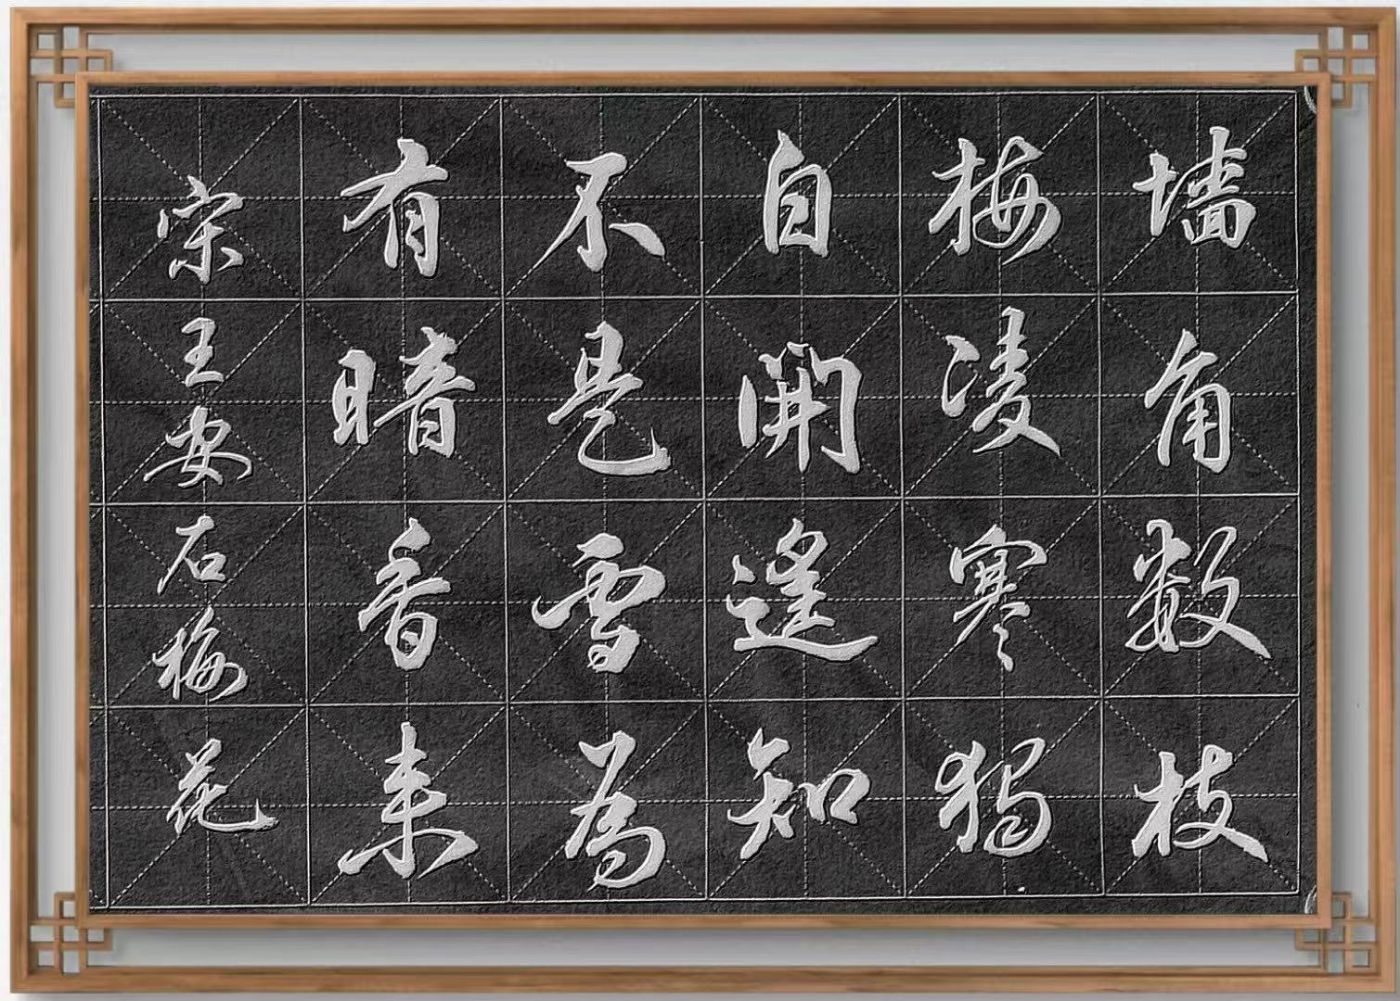 墙角数枝
梅凌寒獨
自開遥知
不是雪為
有暗香来
宋王安石梅花